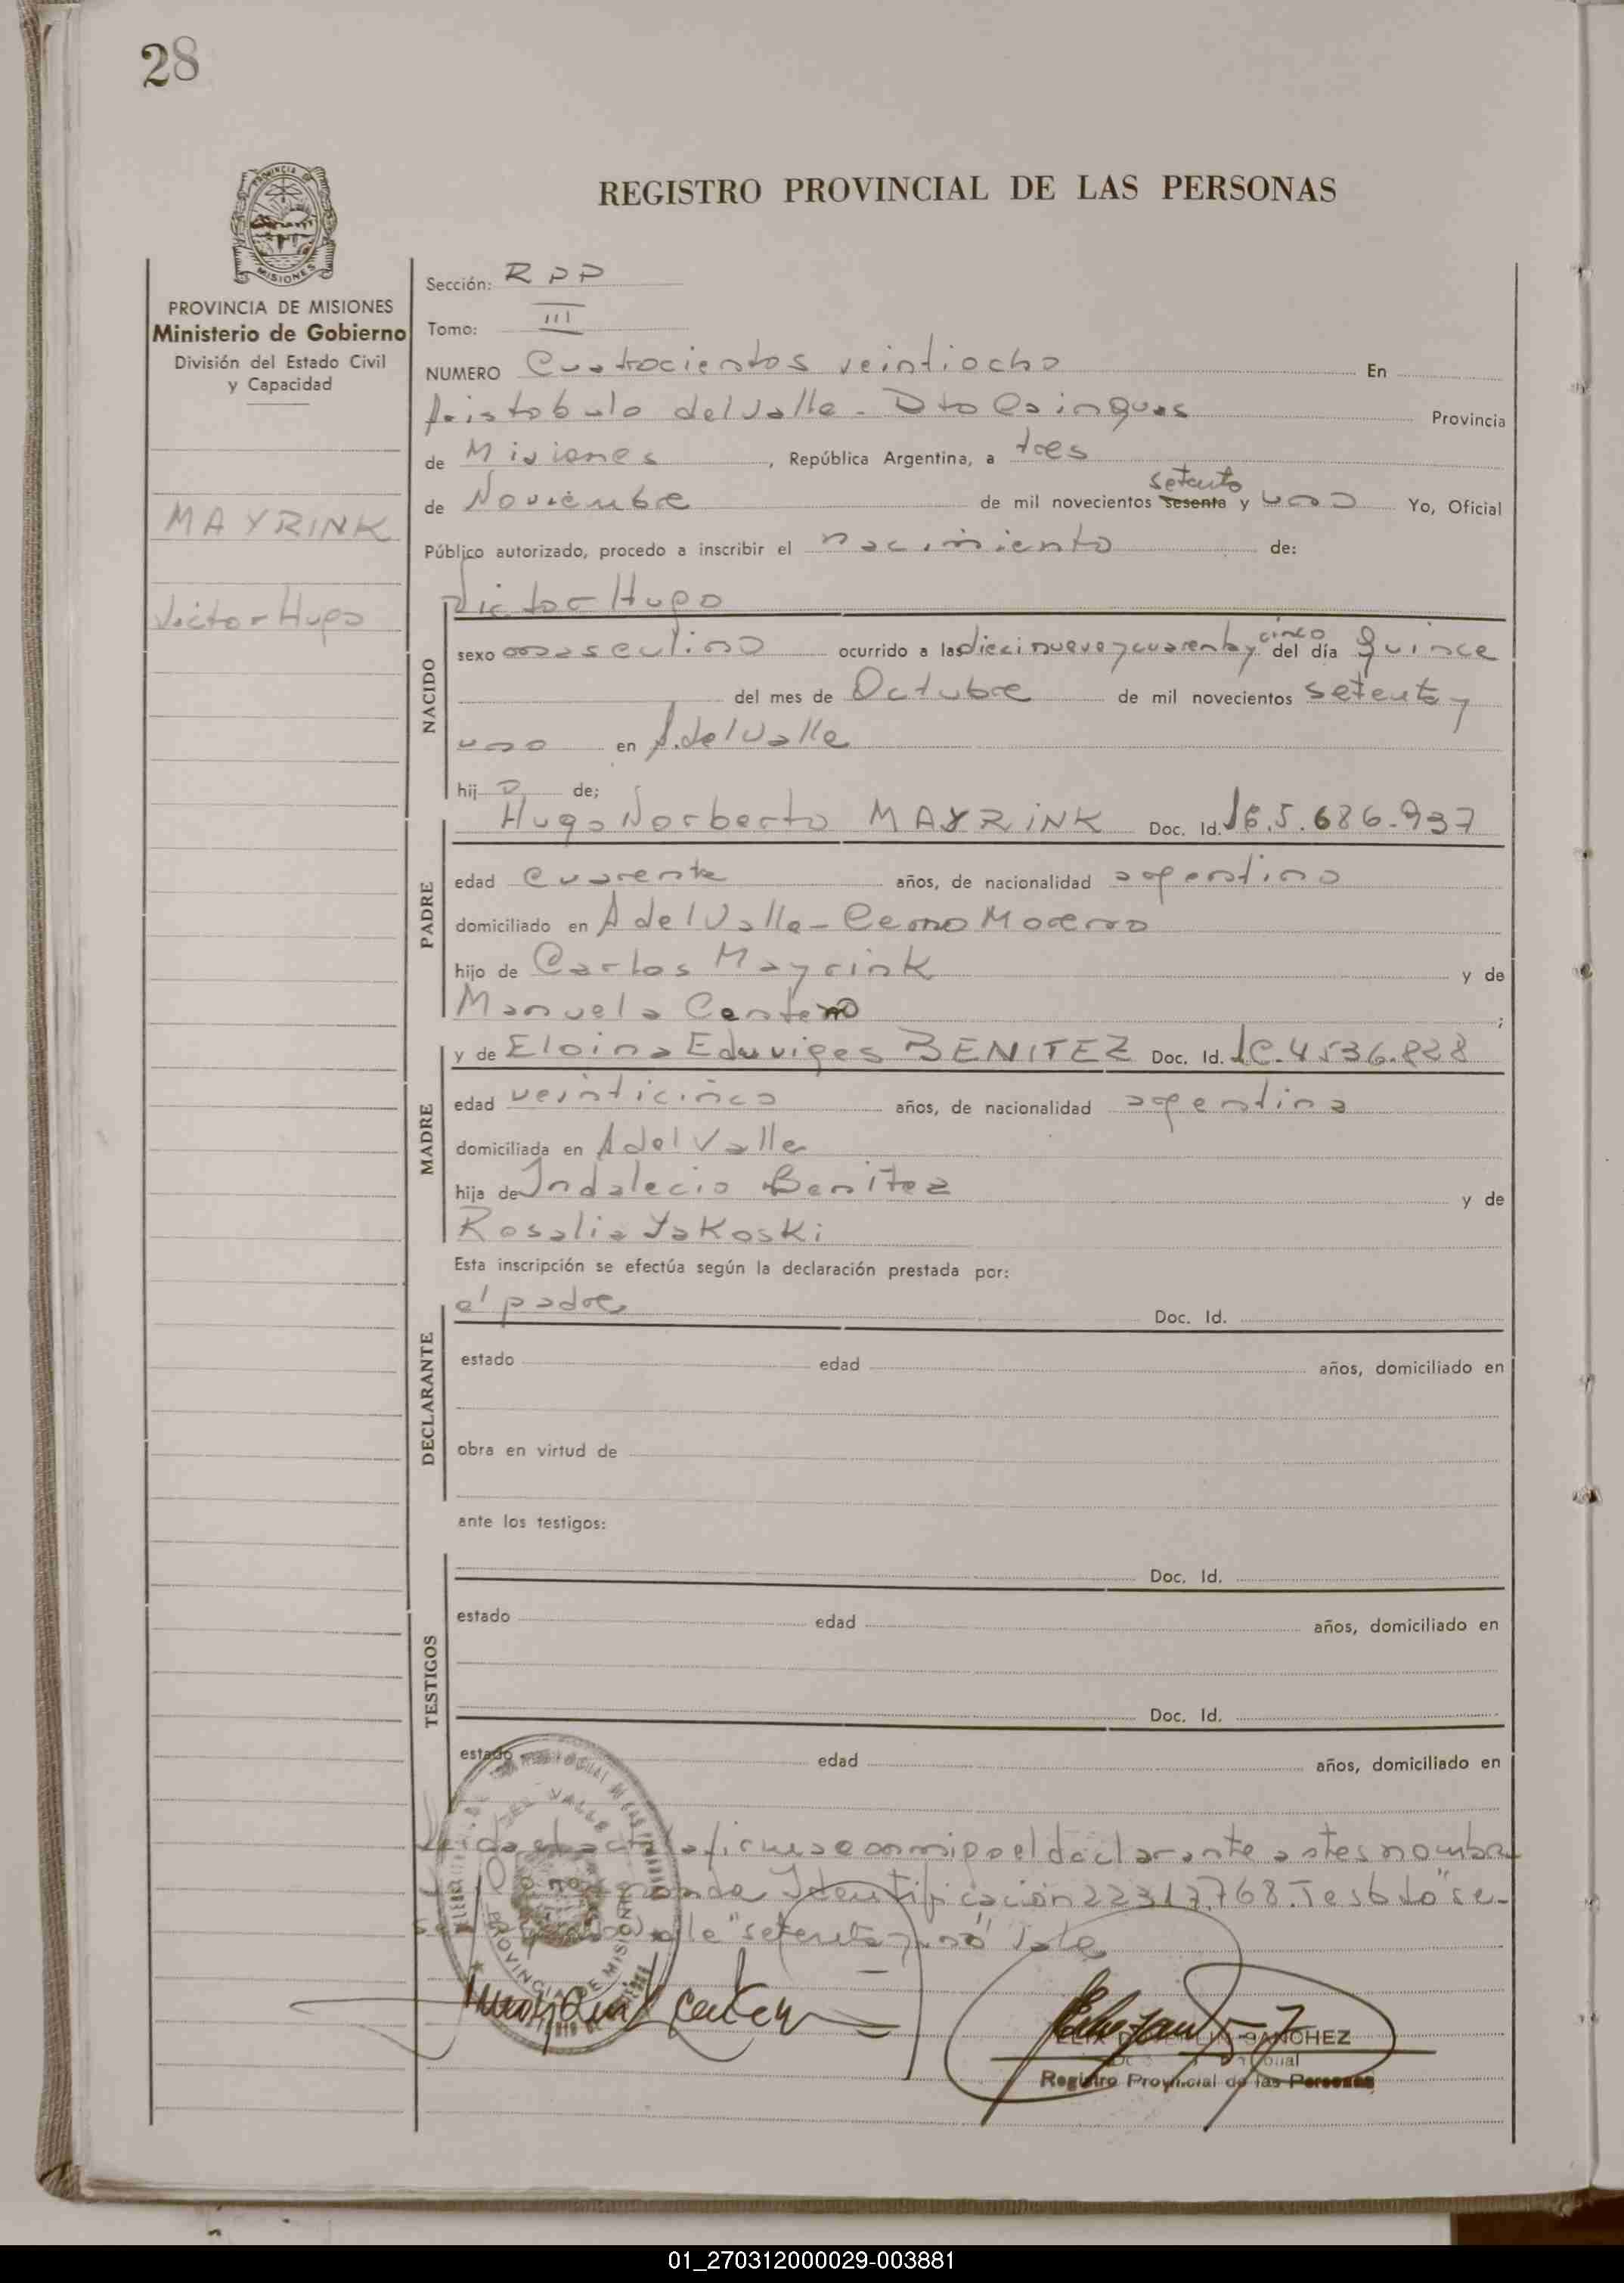 28
PROVINCIA DE MISIONES
Ministerio de Gobierno
División del Estado Civil
y Capacidad
MAYRINK
Victor Hugo
REGISTRO PROVINCIAL DE LAS PERSONAS
Sección: RPP
Tomo: III
NUMERO Cuatrocientos veintiocho En
Aristobulo del Valle - Dto Cainguas Provincia
de Misiones, República Argentina, a tres
setenta
de Noviembre de mil novecientos sesenta y uno Yo, Oficial
Público autorizado, procedo a inscribir el nacimiento de:
Victor Hugo
NACIDO
cinco
sexo masculino ocurrido a las diecinueve y cuarenta y del día Quince
del mes de Octubre de mil novecientos setenta y
uno en A. del Valle
hijo de;
PADRE
Hugo Norberto MAYRINK Doc. Id. 5.686.937
edad cuarenta años, de nacionalidad argentino
domiciliado en A del Valle - Cerro Moreno
hijo de Carlos Mayrink y de
Manuela Centeno ;
MADRE
y de Eloina Eduviges BENITEZ Doc. Id. LC. 4536.828
edad veinticinco años, de nacionalidad argentina
domiciliada en A del Valle
hija de Indalecio Benitez y de
Rosalia Yakoski
Esta inscripción se efectúa según la declaración prestada por:
DECLARANTE
el padre Doc. Id.
estado edad años, domiciliado en
obra en virtud de
ante los testigos:
TESTIGOS
Doc. Id.
estado edad años, domiciliado en
Doc. Id.
estado edad años, domiciliado en
Leida el acta la firma conmigo el declarante antes nombra
Identificación 22317.768. Testado "se-
"setenta y uno" Vale
DEL VALLE
PROVINCIA DE MISIONES
SANCHEZ
Registro Provincial de las Personas
01_270312000029-003881